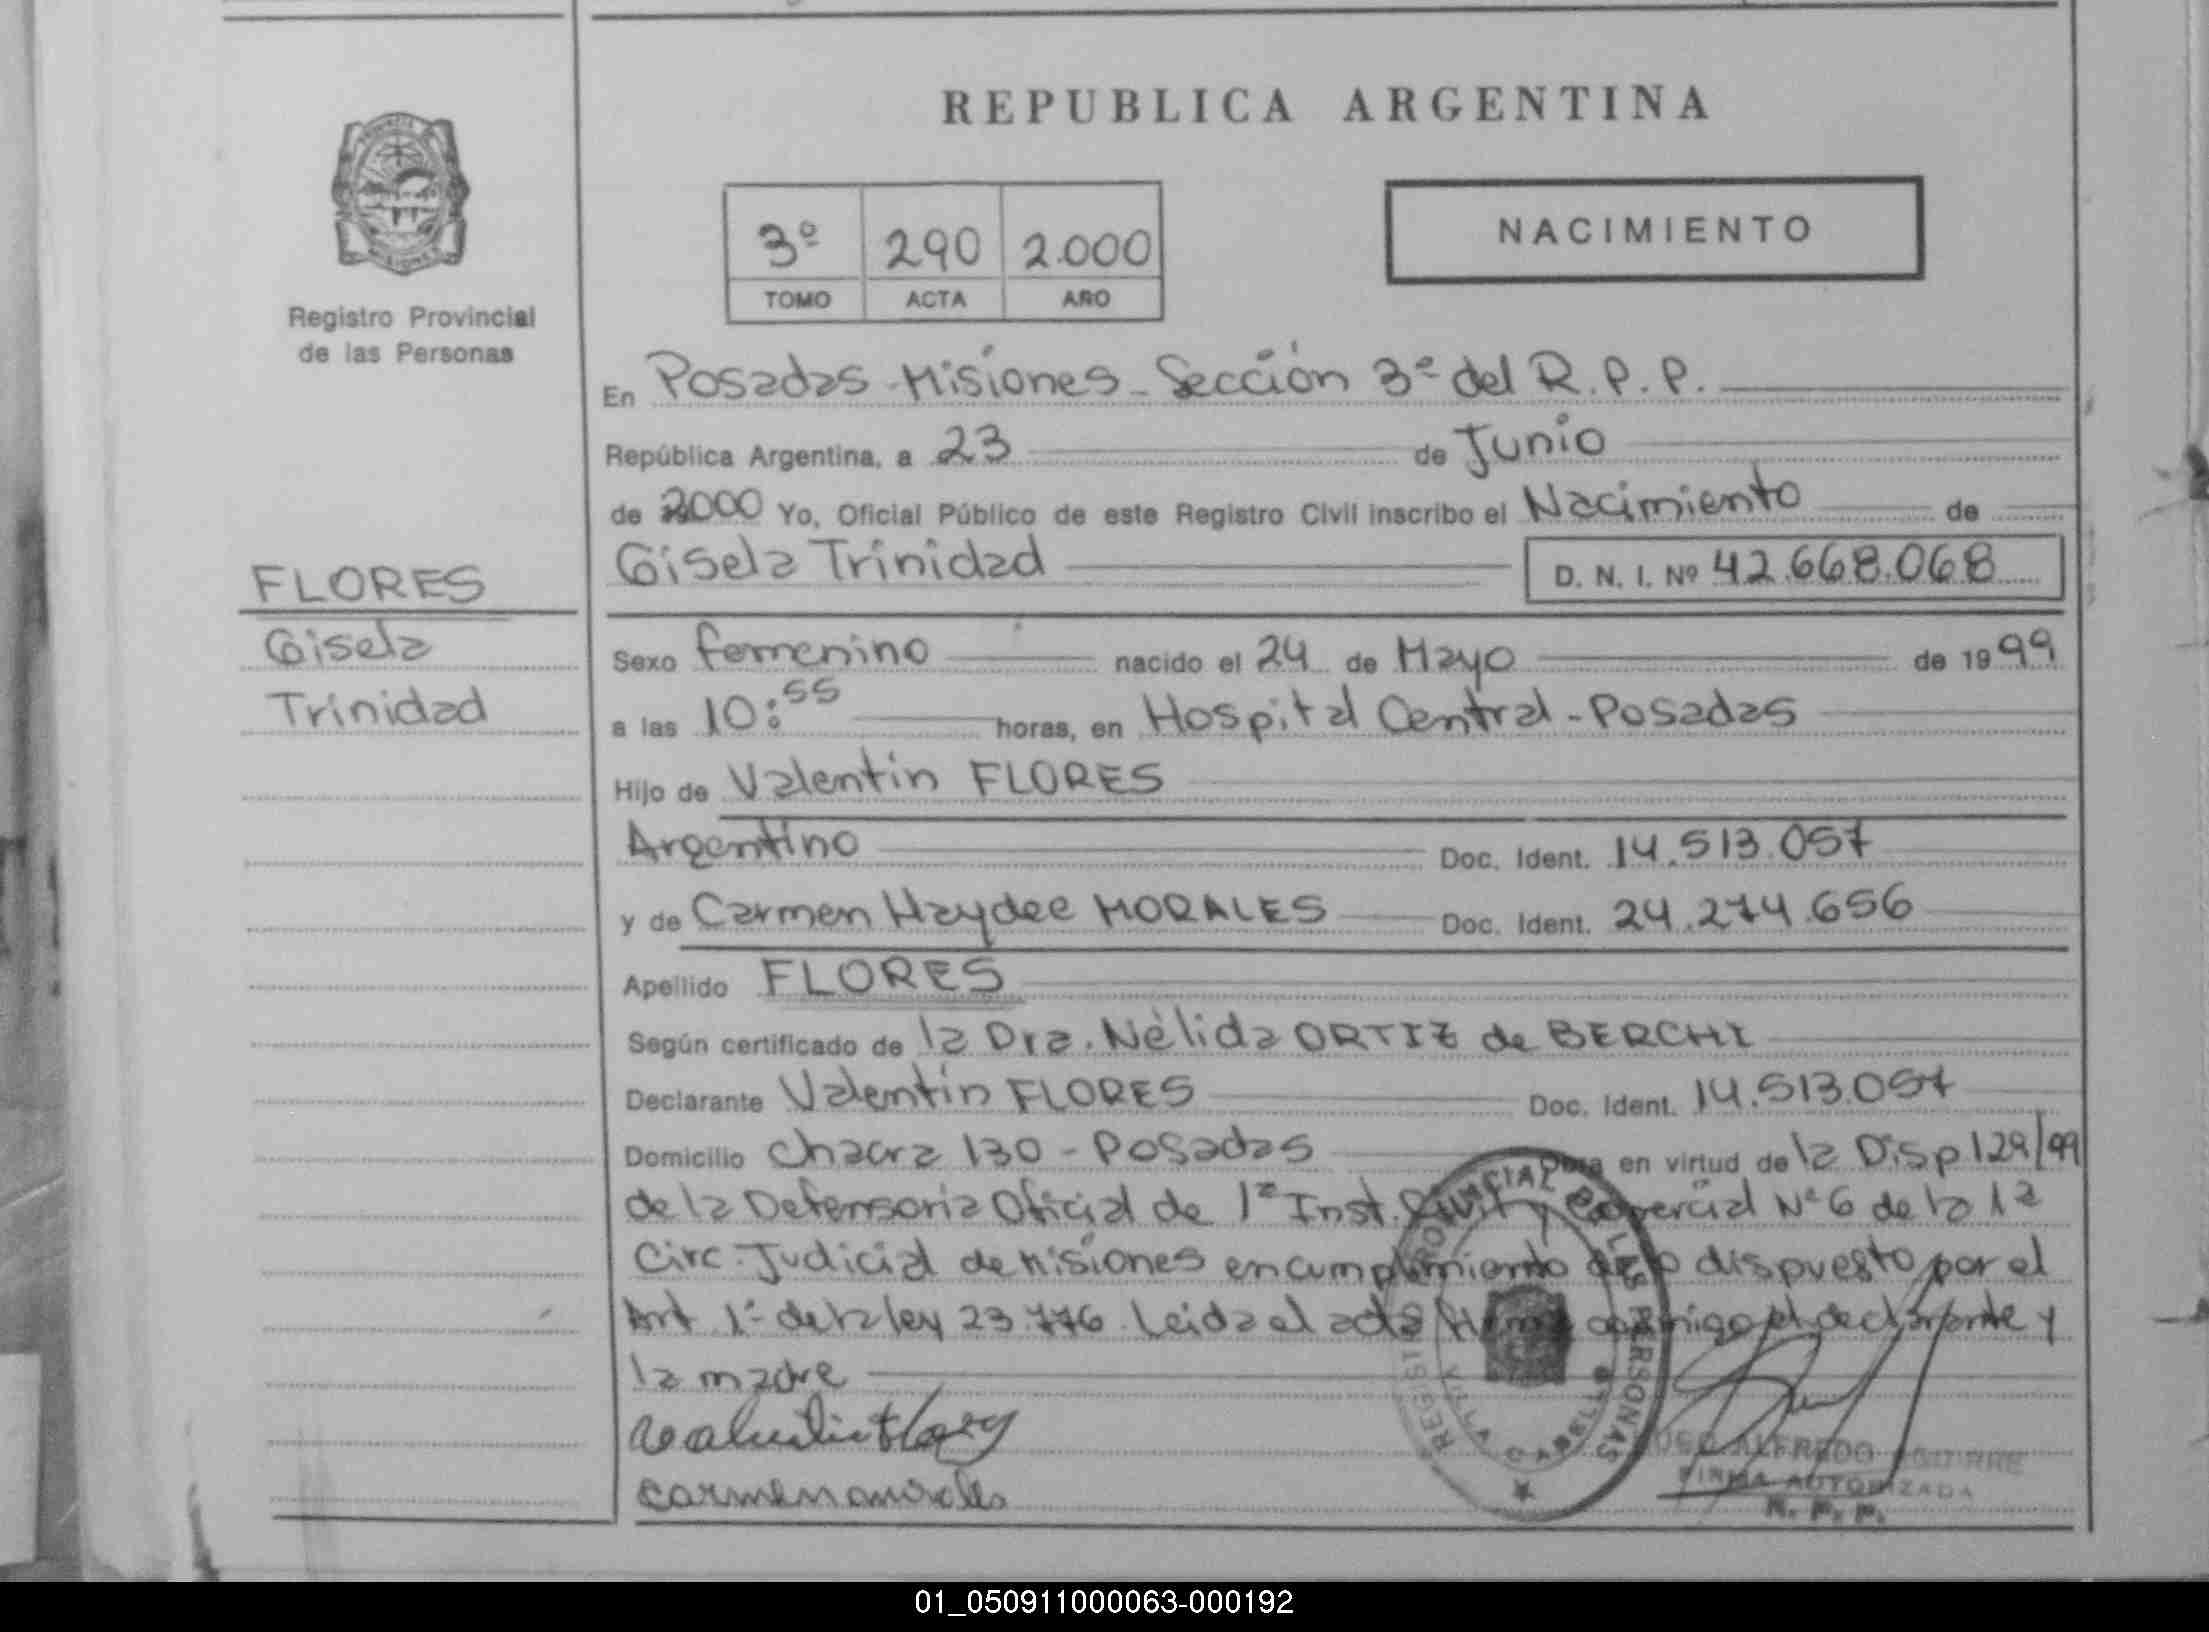 REPUBLICA ARGENTINA
NACIMIENTO
3º 290 2.000
TOMO ACTA AÑO
Registro Provincial
de las Personas
En Posadas-Misiones-Sección 3ª del R.P.P.
República Argentina, a 23 de Junio
de 2000 Yo, Oficial Público de este Registro Civil inscribo el Nacimiento de
Gisela Trinidad D. N. I. Nº 42.668.068
FLORES
Gisela
Trinidad
Sexo femenino nacido el 24 de Mayo de 1999
a las 10:55 horas, en Hospital Central-Posadas
Hijo de Valentín FLORES
Argentino Doc. Ident. 14.513.057
y de Carmen Haydee MORALES Doc. Ident. 24.274.656
Apellido FLORES
Según certificado de la Dra. Nélida ORTIZ de BERCHI
Declarante Valentín FLORES Doc. Ident. 14.513.057
Domicilio chacra 130-Posadas en virtud de la Disp 129/99
de la Defensoria Oficial de 1ª Inst. Civil y Comercial Nº 6 de la 1ª
Circ. Judicial de Misiones en cumplimiento de lo dispuesto por el
Art 1º de la ley 23.776. Leida el acta firma conmigo el declarante y
la madre
carmen morales
REGISTRO PROVINCIAL DE LAS PERSONAS
VILLA CABELLO
ALFREDO AGUIRRE
FIRMA AUTORIZADA
R. P. P.
01_050911000063-000192